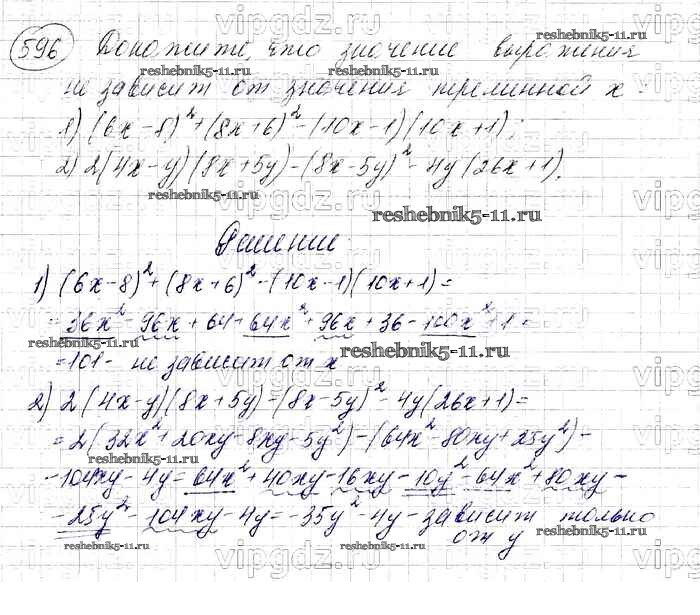 596 Докажите, что значение выражения
не зависит от значения переменной x
1) (6x-8)²+(8x+6)²-(10x-1)(10x+1);
2) 2(4x-y)(8x+5y)-(8x-5y)²-4y(26x+1).
Решение
1) (6x-8)²+(8x+6)²-(10x-1)(10x+1)=
=36x²-96x+64+64x²+96x+36-100x²+1=
=101- не зависит от x
2) 2(4x-y)(8x+5y)-(8x-5y)²-4y(26x+1)=
=2(32x²+20xy-8xy-5y²)-(64x²-80xy+25y²)-
-104xy-4y=64x²+40xy-16xy-10y²-64x²+80xy-
-25y²-104xy-4y=-35y²-4y-зависит только
от y
vipgdz.ru
reshebnik5-11.ru